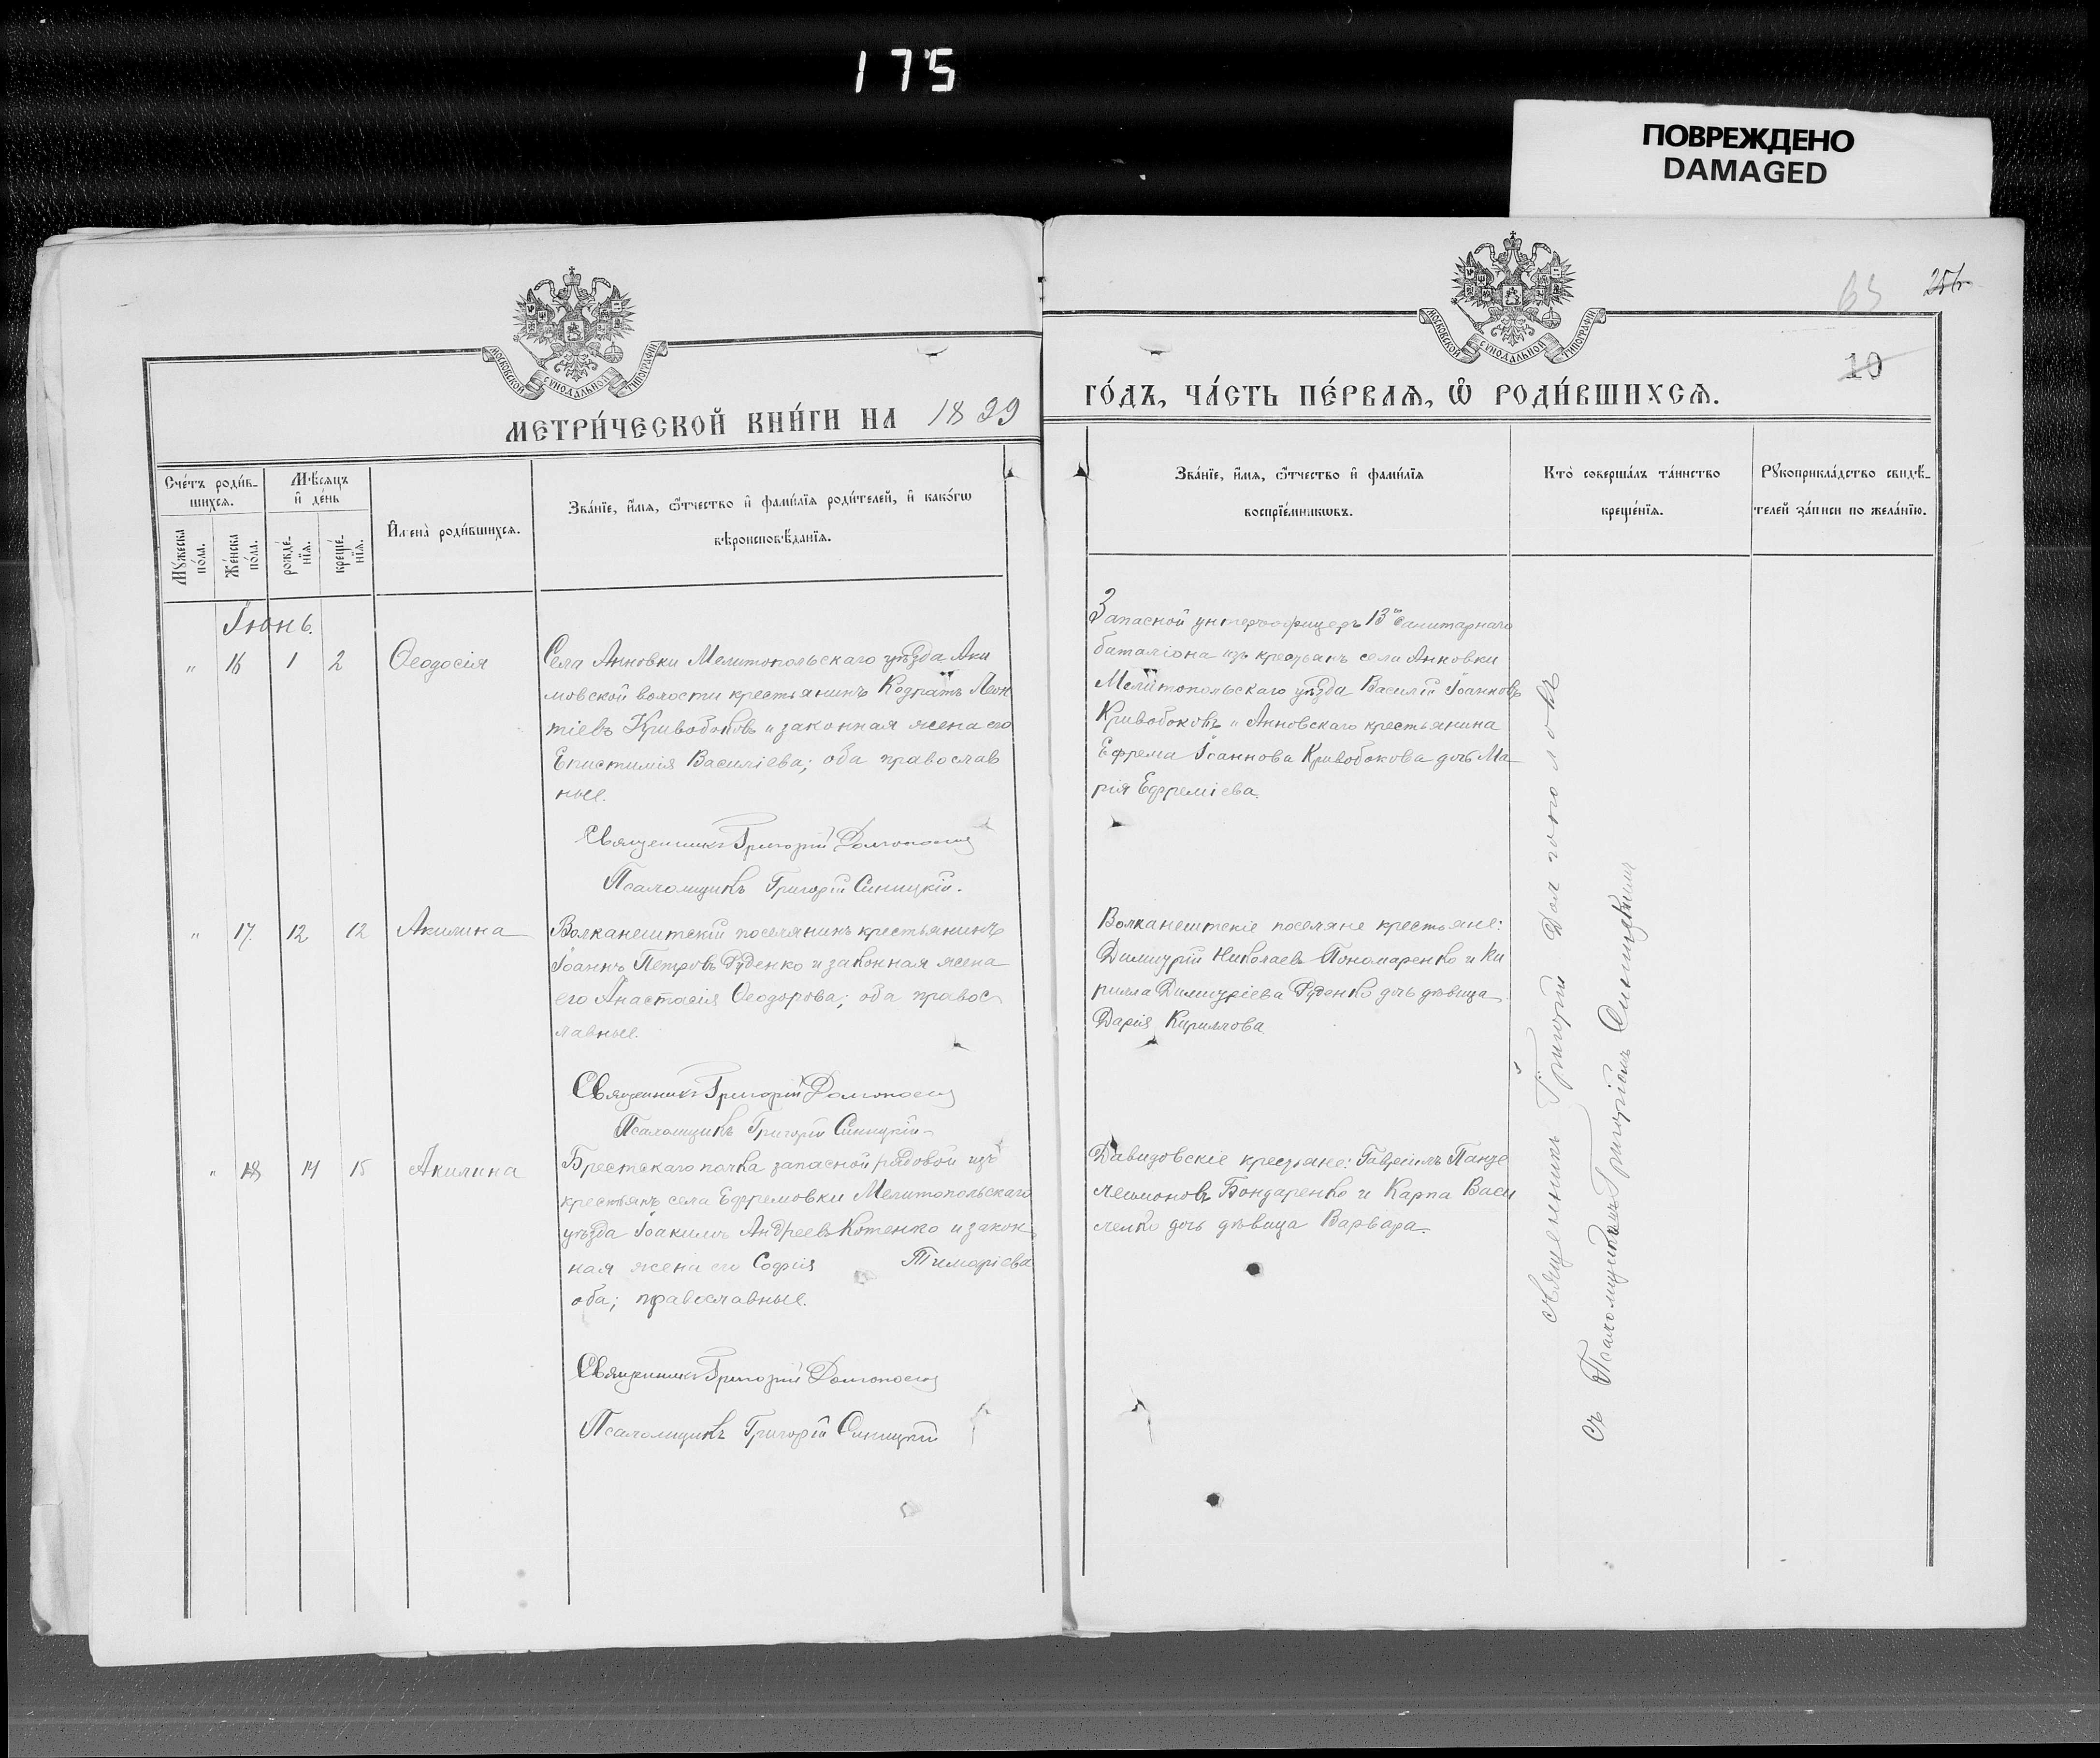 175
ПОВРЕЖДЕНО
DAMAGED
МОСКОВСКОЙ СѴНОДАЛЬНОЙ ТИПОГРАФІИ
МЕТРИ́ЧЕСКОЙ КНИ́ГИ НА 1899
Сче́тъ роди́в-
шихся.
Мѣ́сяцъ
и҆ де́нь
Мꙋ́жеска
по́ла.
Же́нска
по́ла.
рожде́-
нїя.
креще́-
нїя.
И҆мена̀ роди́вшихся.
Зва́нїе, и҆́мя, ѻ҆́тчество и҆ фами́лїя роди́телей, и҆ како́гѡ
вѣроисповѣ́данїя.
Іюнь.
" 16 1 2 Ѳеодосія
Села Анновки Мелитопольскаго уѣзда Аки
мовской волости крестьянинъ Кодратъ Леон
тіевъ Кривобоковъ и законная жена его
Епистимія Василіева; оба православ
ные.
Священникъ Григорій
Псаломщикъ Григорій Синицкій.
" 17. 12 12 Акилина
Волканештскій поселянинъ крестьянинъ
Іоаннъ Петровъ Руденко и законная жена
его Анастасія Ѳеодорова; оба правос
лавные.
Священникъ Григорій
Псаломщикъ Григорій Синицкій
" 18 14 15 Акилина
Брестскаго полка запасной рядовой изъ
крестьянъ села Ефремовки Мелитопольскаго
уѣзда Іоакимъ Андреевъ Котенко и закон
ная жена его Софія
оба; православные.
Священникъ Григорій
Псаломщикъ Григорій Синицкій
МОСКОВСКОЙ СѴНОДАЛЬНОЙ ТИПОГРАФІИ
256
10
ГО́ДЪ, ЧА́СТЬ ПЕ́РВАЯ, Ѡ҆ РОДИ́ВШИХСЯ.
Зва́нїе, и҆́мя, ѻ҆́тчество и҆ фами́лїя
воспрїе́мникѡвъ.
Кто̀ соверша́лъ та́инство
креще́нїя.
Рꙋкоприкла́дство свидѣ́-
телей за́писи по жела́нїю.
Запасной унтерофицеръ 13го
баталіона изъ крестьянъ села Анновки
Мелитопольскаго уѣзда Василій Іоанновъ
Кривобоковъ и Анновскаго крестьянина
Ефрема Іоаннова Кривобокова дочь Ма-
рія Ефреміева.
Волканештскіе поселяне крестьяне:
Димитрій Николаевъ Пономаренко и Ки
рилла Димитріева Руденко дочь дѣвица
Дарія Кириллова
Давидовскіе крестьяне:
Бондаренко и Карпа Васи
ленко дочь дѣвица Варвара.
Священникъ Григорій
съ Псаломщикомъ Григоріемъ Синицкимъ